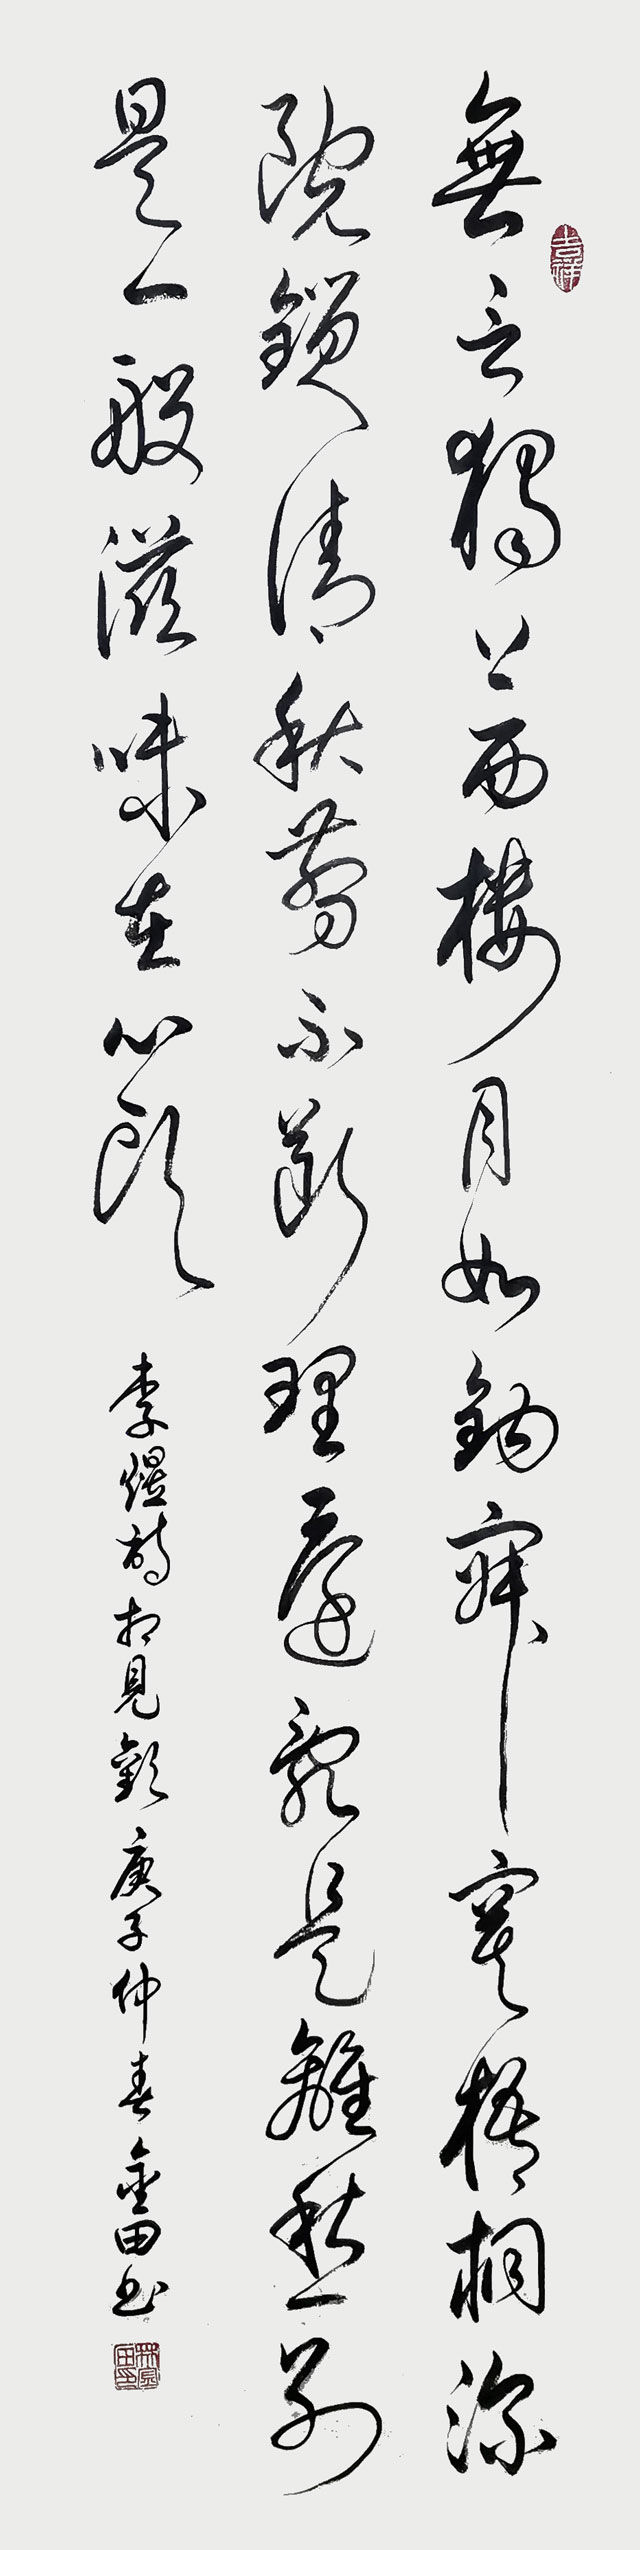 吉祥
無言獨上西樓月如鈎寂寞梧桐深
院鎖清秋剪不斷理還亂是離愁別
是一般滋味在心頭 李煜詩相見歡 庚子仲春 金田书
林金田印